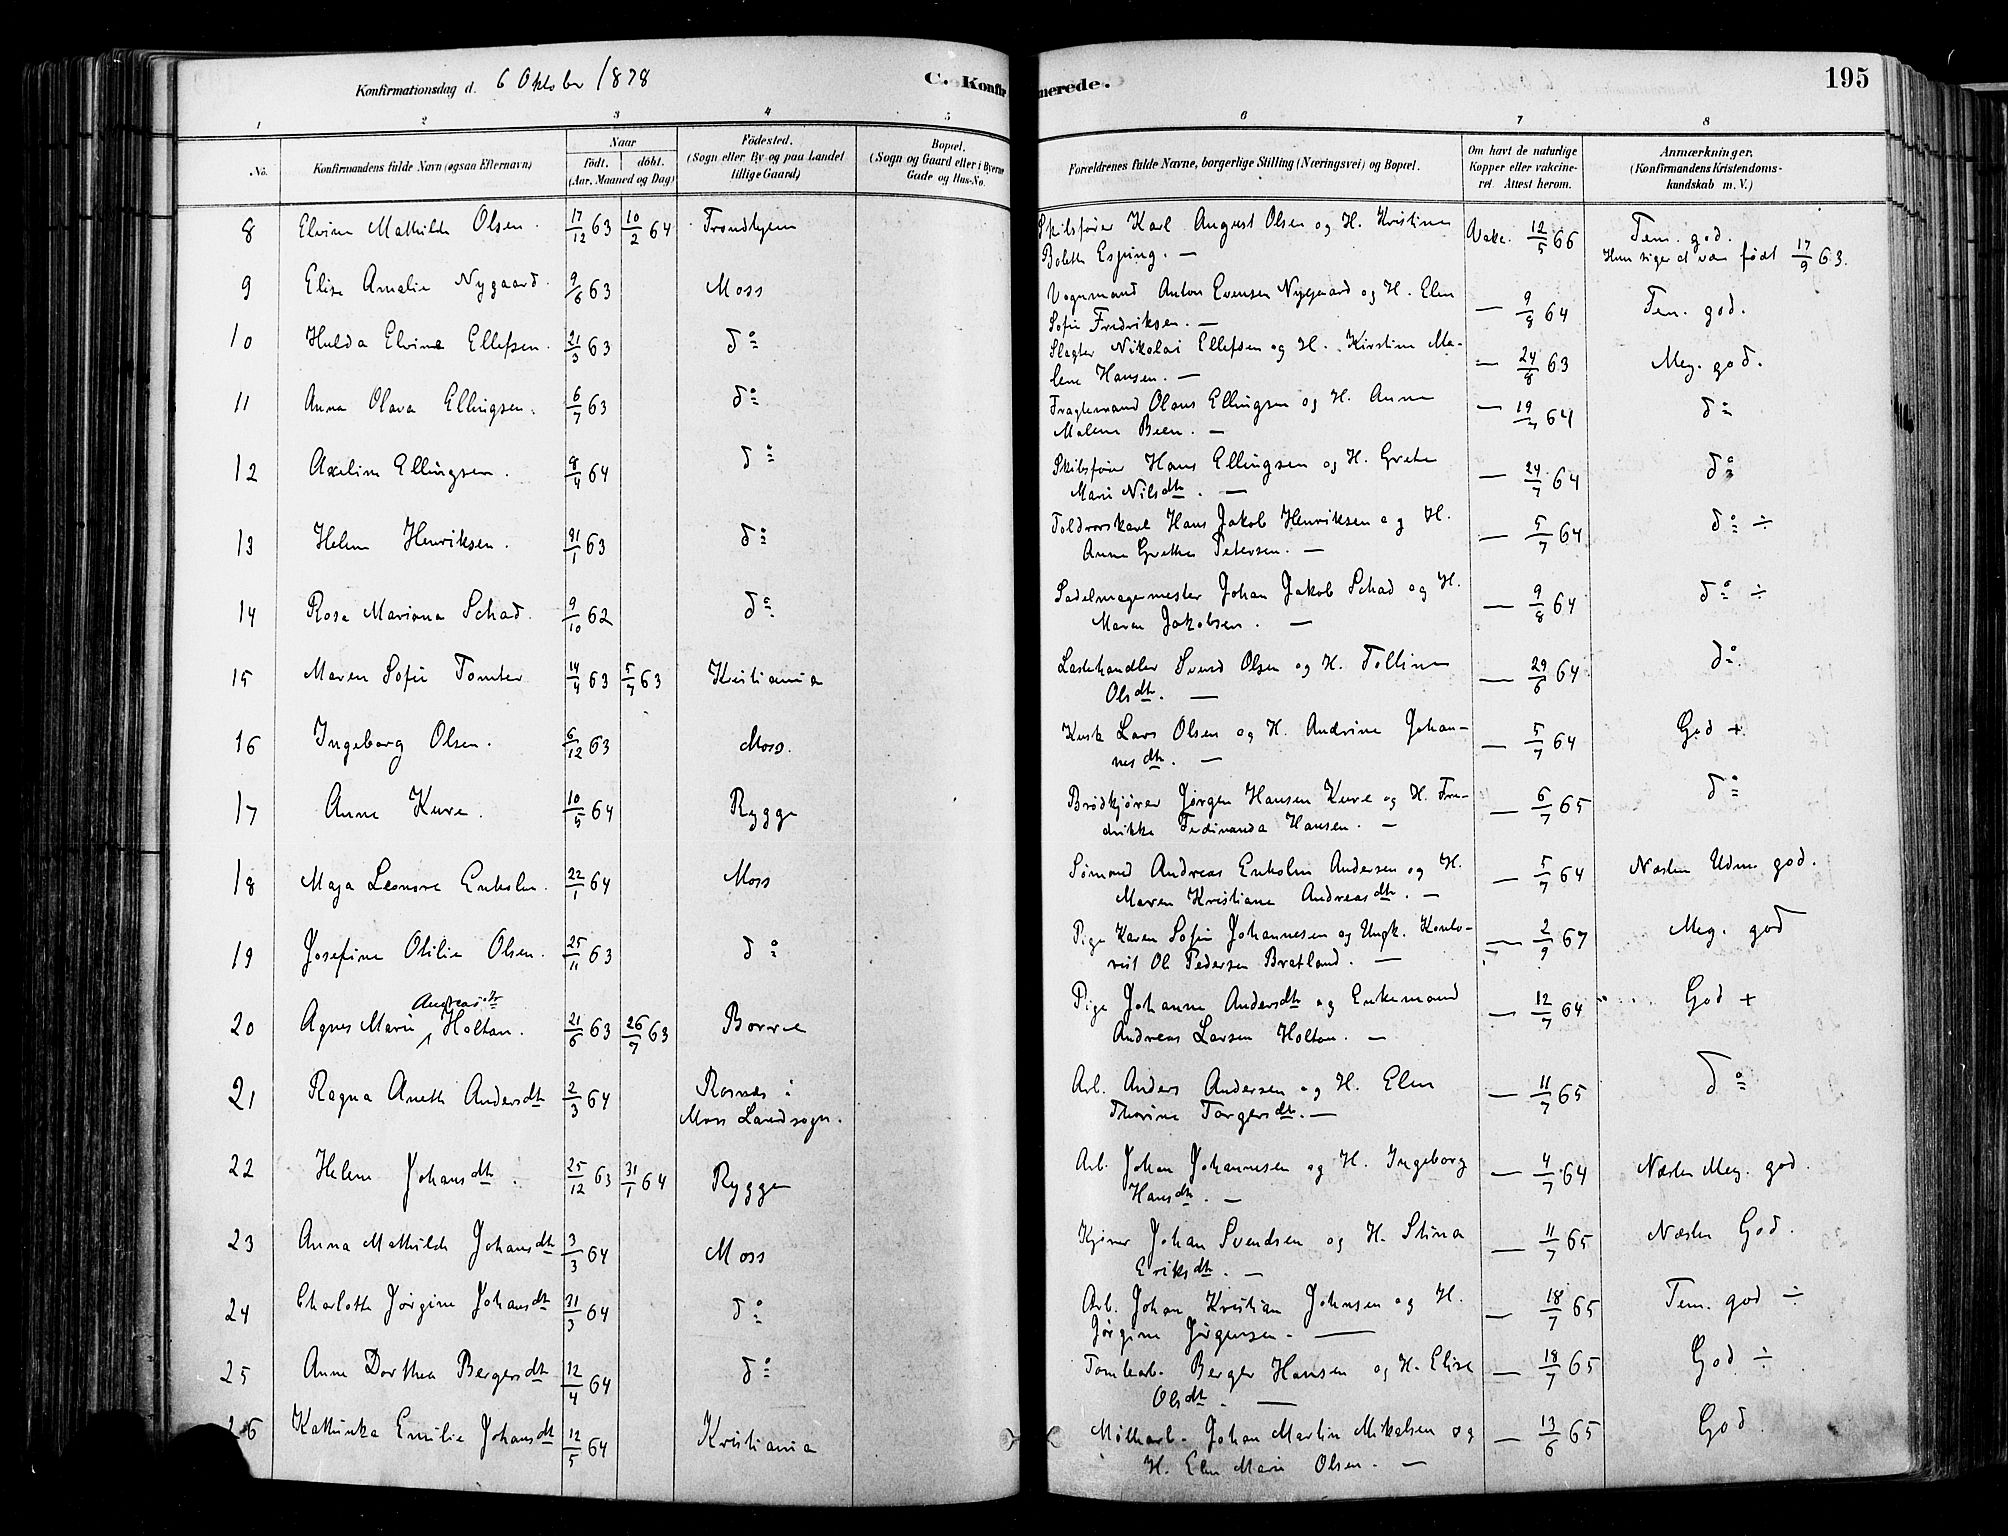 Konfirmationsdag d. 6 Oktober 1878
C. Konfirmerede.
195
1 2 3 4 5 6 7 8
No.
Konfirmandens fulde Navn (ogsaa Efternavn)
Naar
födt. döbt.
(Aar, Maaned og Dag)
Födested.
(Sogn eller By og paa Landet
tillige Gaard)
Bopæl.
(Sogn og Gaard eller i Byerne
Gade og Hus-No.
Forældrenes fulde Navne, borgerlige Stilling (Næringsvei) og Bopæl.
Om havt de naturlige
Kopper eller vakcine-
ret. Attest herom.
Anmærkninger.
(Konfirmandens Kristendoms-
kundskab m. V.)
8 Elvine Mathilde Olsen. 17/12 63 10/2 64 Trondhjem Skibsfører Karl August Olsen og H. Kristine Vakc. 12/5 66 Tem. god.
Bolette Esping. — Hun siger at være født 17/9 63.
9 Elise Amalie Nygaard. 9/6 63 Moss Vognmand Anton Evensen Nygaard og H. Elen — 9/8 64 Tem. god.
Sofie Fredriksen. —
10 Hulda Elvine Ellefsen. 21/3 63 do Slagter Nikolai Ellefsen og H. Kirstine Ma- — 24/8 63 Meg. god.
lene Hansen. —
11 Anna Olava Ellingsen. 6/7 63 do Fragtemand Olaus Ellingsen og H. Anne — 19/7 64 do
Malene Been. —
12 Axeline Ellingsen. 8/4 64 do Skibsfører Hans Ellingsen og H. Grethe — 24/7 64 do
Marie Nilsdtr. —
13 Helene Henriksen. 91/1 63 do Toldrorskarl Hans Jakob Henriksen og H. — 5/7 64 do ÷
Anne Grethe Petersen. —
14 Rosa Mariana Schad. 9/10 62 do Sadelmagermester Johan Jakob Schad og H. — 9/8 64 do ÷
Maren Jakobsen. —
15 Maren Sofie Tomter 14/4 63 5/7 63 Kristiania Lastehandler Svend Olsen og H. Polline — 29/6 64 do
Olsdtr. —
16 Ingeborg Olsen. 6/12 63 Moss. Kusk Lars Olsen og H. Andrine Johan- — 5/7 64 God +
nesdtr. —
17 Anne Kure. 10/5 64 Rygge Brødkjører Jørgen Hansen Kure og H. Fre- — 6/7 65 do
drikke Ferdinanda Hansen. —
18 Maja Leonore Enholm. 22/1 64 Moss Sømand Andreas Enholm Andersen og H. — 5/7 64 Næsten Udm. god.
Maren Kristiane Andreasdtr. —
19 Josefine Otilie Olsen. 25/11 63 do Pige Karen Sofie Johannesen og Ungk. Konto- — 2/9 67 Meg. god
rist Ol. Pedersen Bratland. —
Andreasdtr
20 Agnes Marie Holtan. 21/6 63 26/7 63 Borre Pige Johanne Andersdtr og Enkemand — 12/7 64 God +
Andreas Larsen Holtan. —
21 Ragna Aneth Andersdtr 2/3 64 Rosnæs i Arb. Anders Andersen og H. Elen — 11/7 65 do
Moss Landsogn. Thorine Torgersdtr. —
22 Helene Johansdtr. 25/12 63 31/1 64 Rygge Arb. Johan Johannesen og H. Ingeborg — 4/7 64 Næsten Meg. god.
Hansdtr. —
23 Anna Mathilde Johansdtr 3/3 64 Moss Kjører Johan Svendsen og H. Stina — 11/7 65 Næsten God.
Eriksdtr. —
24 Charlotte Jørgine Johansdtr 31/3 64 do Arb. Johan Kristian Johnsen og H. — 18/7 65 Tem. god ÷
Jørgine Jørgensen. —
25 Anne Dorthea Bergersdtr 12/4 64 do Tomtearb. Berger Hansen og H. Elise — 18/7 65 God ÷
Olsdtr. —
26 Kathinka Emilie Johansdtr 12/5 64 Kristiania Møllearb. Johan Martin Mikalsen og — 13/6 65 God.
H. Elen Marie Olsen. —